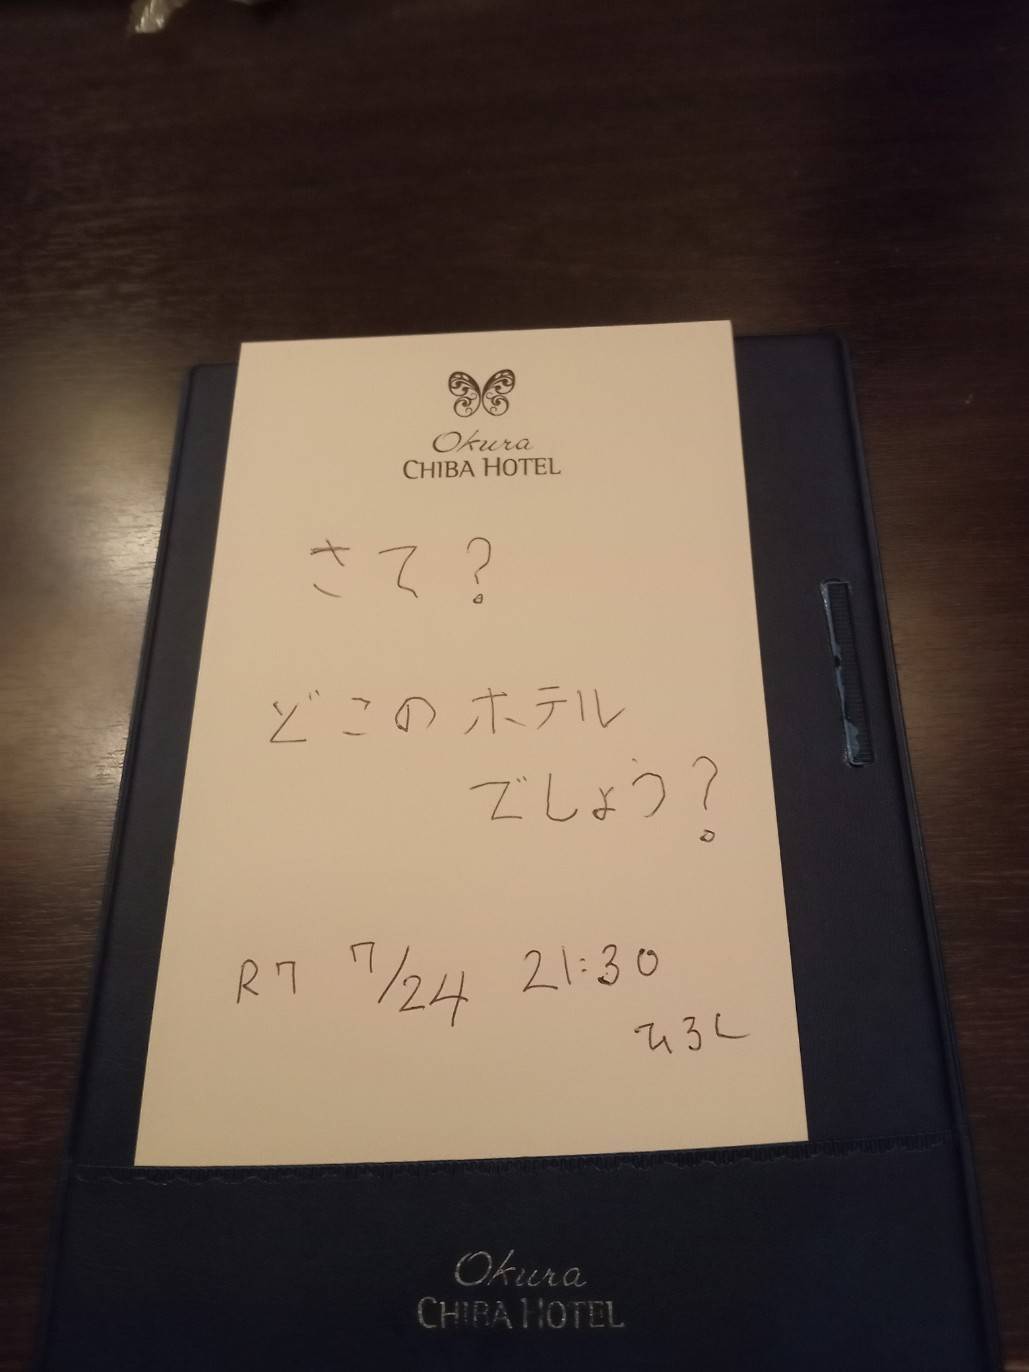 Okura
CHIBA HOTEL
さて?
どこのホテル
でしょう?
R7 7/24 21:30
ひろし
Okura
CHIBA HOTEL